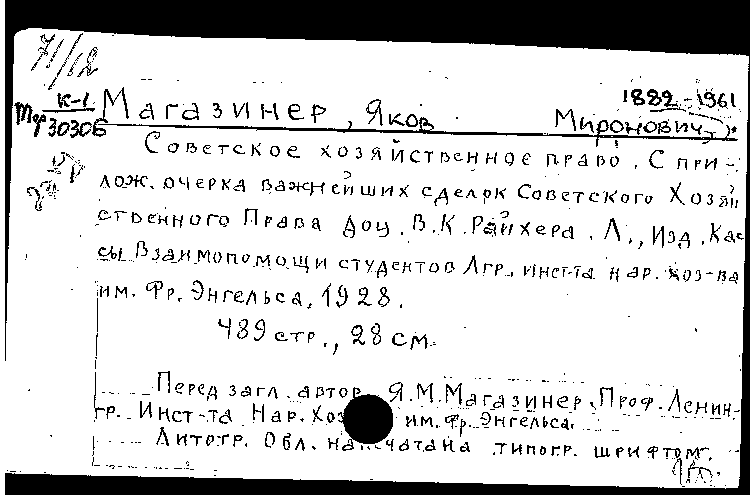 71/12
К-1
30306
Магазинер, Яков Миронович
1882-1961
Советское хозяйственное право. С при-
лож. очерка важнейших сделок Советского Хозяй
ственного Права доц. В.К. Райхера. Л., Изд. Кас
сы Взаимопомощи студентов Лгр. инст-та нар. хоз-ва
им. Фр. Энгельса, 1928.
489 стр., 28 см.
Перед загл. автор Я.М. Магазинер, Проф. Ленин-
гр. Инст-та Нар. Хоз им. Фр. Энгельса.
Литогр. Обл. напечатана типогр. шрифтом.